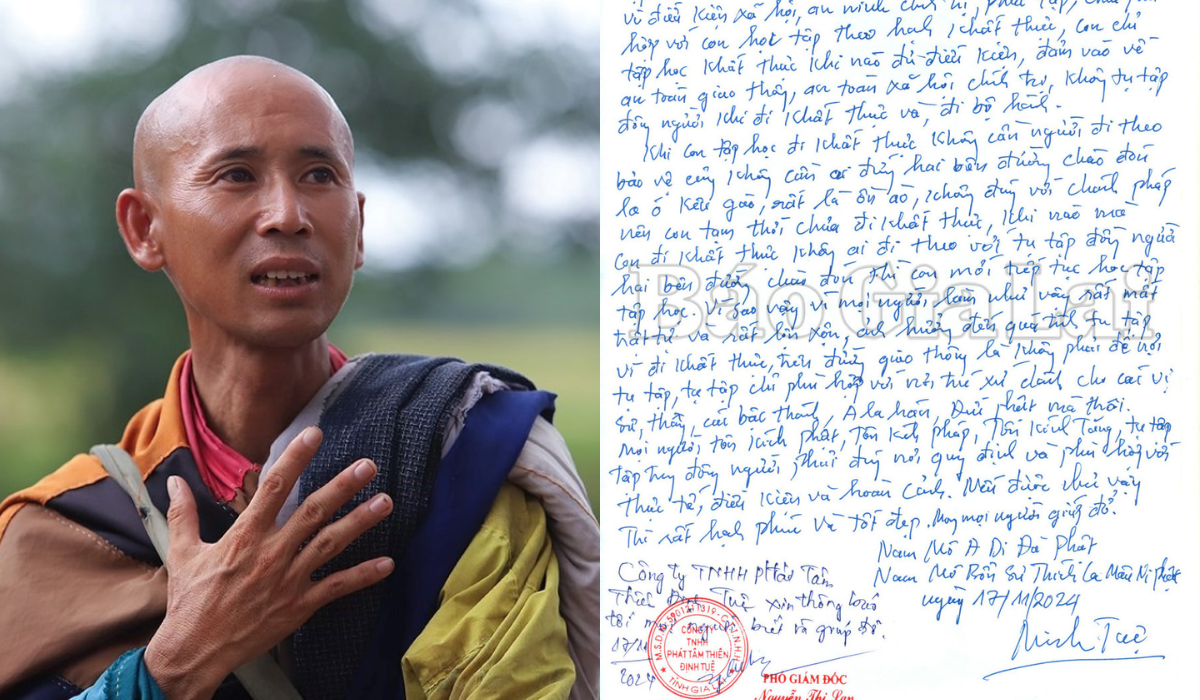 vì điều kiện xã hội, an ninh chính trị, phức tạp, chưa phù
hợp với con học tập theo hạnh khất thực, con chỉ
tập học khất thực khi nào đủ điều kiện, đảm bảo về
an toàn giao thông, an toàn xã hội chính trị, không tụ tập
đông người khi đi khất thực và đi bộ hành.
Khi con tập học đi khất thực không cần người đi theo
bảo vệ cũng không cần ai đứng hai bên đường chào đón
la ó kêu gào, rất là ồn ào, không đúng với chánh pháp
nên con tạm thời chưa đi khất thực, khi nào mà
con đi khất thực không ai đi theo với tụ tập đông người
hai bên đường chào đón thì con mới tiếp tục học tập
tập học. Vì sao vậy vì mọi người làm như vậy rất mất
trật tự và rất lộn xộn, ảnh hưởng đến quá trình tu tập
vì đi khất thực, trên đường giao thông là không phải để nơi
tu tập, tu tập chỉ phù hợp với nơi trú xứ dành cho các vị
sư, thầy, các bậc thánh, A la hán, Đức phật mà thôi.
Mọi người, tôn kính phật, tôn kính pháp, tôn kính Tăng, tu tập
tập trung đông người, phải đúng nơi quy định và phù hợp với
thực tế, điều kiện và hoàn cảnh. Nếu được như vậy
Thì rất hạnh phúc và tốt đẹp. Mong mọi người giúp đỡ.
Nam Mô A Di Đà Phật
Nam Mô Bổn Sư Thích Ca Mâu Ni Phật
ngày 17/11/2024
Minh Tuệ
Báo Gia Lai
Công ty TNHH phát Tâm
Thiền Định Tuệ xin thông báo
tới mọi người biết và giúp đỡ.
17/11
2024
CÔNG TY
TNHH
PHÁT TÂM THIỀN
ĐỊNH TUỆ
TỈNH GIA LAI
PHÓ GIÁM ĐỐC
Nguyễn Thị Lan